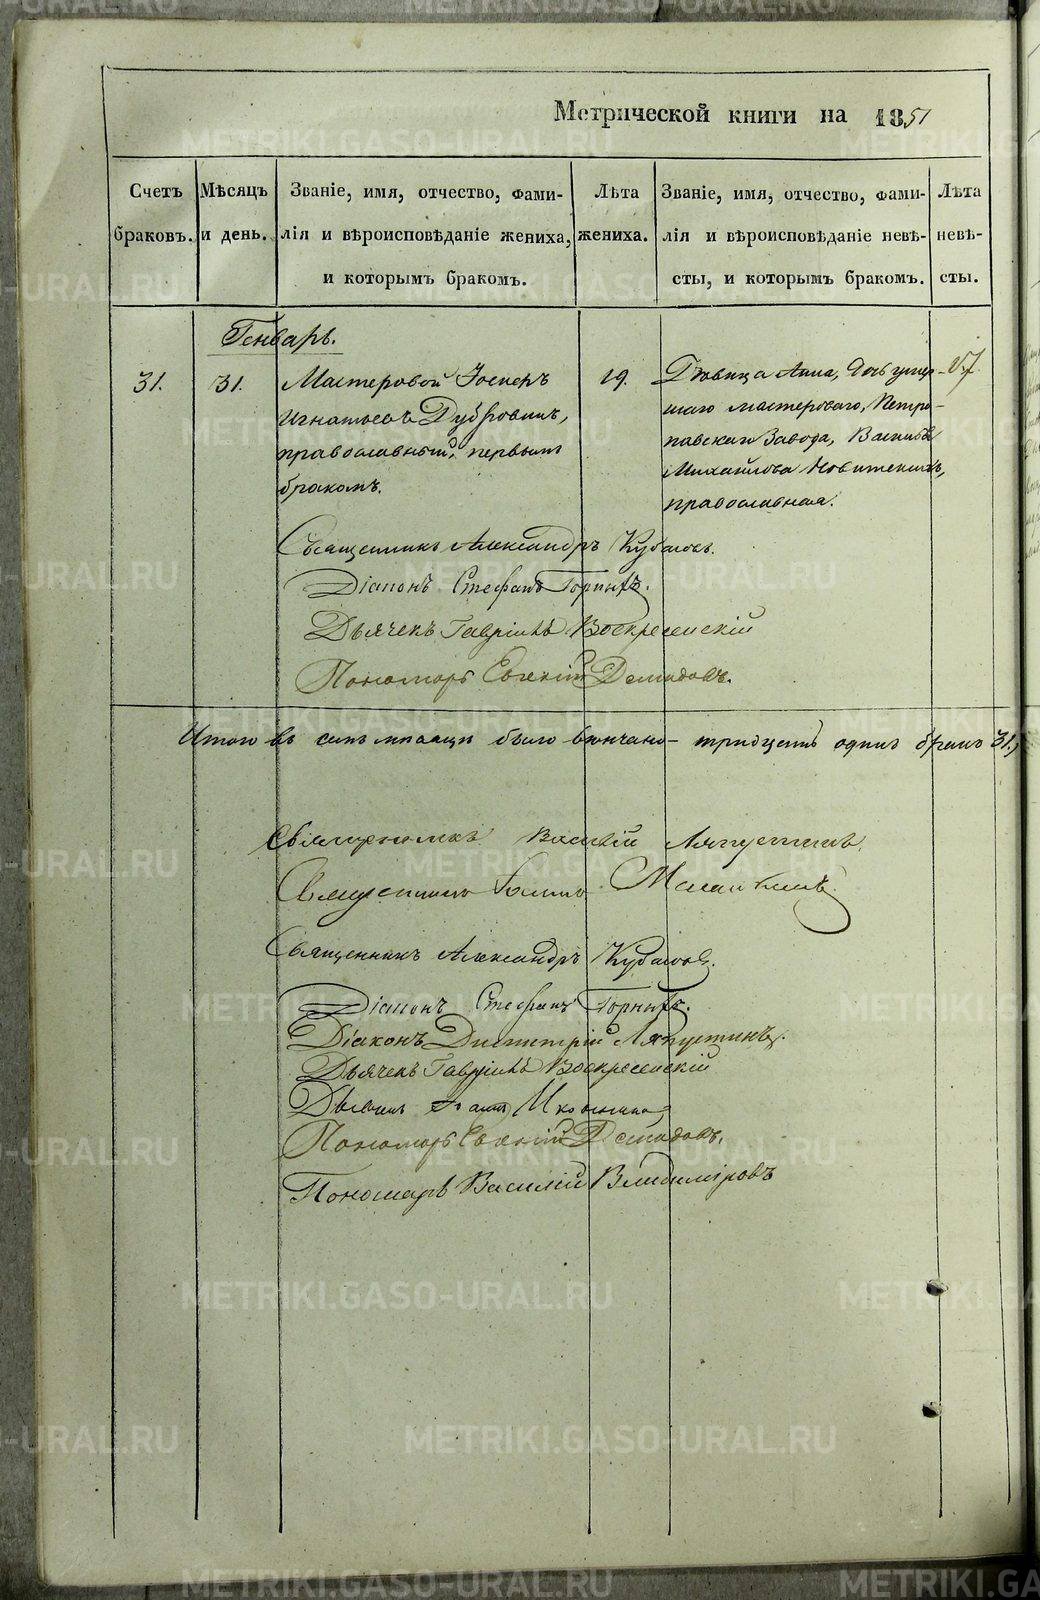 Метрической книги на 1851
Счетъ браковъ.
Мѣсяцъ и день.
Званіе, имя, отчество, фами-
лія и вѣроисповѣданіе жениха,
и которымъ бракомъ.
Лѣта жениха.
Званіе, имя, отчество, фами-
лія и вѣроисповѣданіе невѣ-
сты, и которымъ бракомъ.
Лѣта невѣ-
сты.
Генварь.
31.
31.
Мастеровой Іосифъ
Игнатьевъ Дубровинъ,
православный, первымъ
бракомъ.
19.
Дѣвица Анна, дочь умер-
шаго мастероваго, Петро-
павловскаго Завода, Василья
Михайлова
православная.
17.
Священникъ Александръ Кубасовъ.
Діаконъ Стефанъ Горныхъ.
Дьячекъ Гавріилъ Воскресенскій
Пономарь Евгеній Демидовъ.
Итого въ семъ мѣсяцѣ было вѣнчано тридцать одинъ бракъ 31,
Священникъ Василій Ляпустинъ.
Священникъ
Священникъ Александръ Кубасовъ.
Діаконъ Стефанъ Горныхъ.
Діаконъ Димитрій Ляпустинъ.
Дьячекъ Гавріилъ Воскресенскій
Дьячекъ
Пономарь Евгеній Демидовъ.
Пономарь Василій Владиміровъ
METRIKI.GASO-URAL.RU